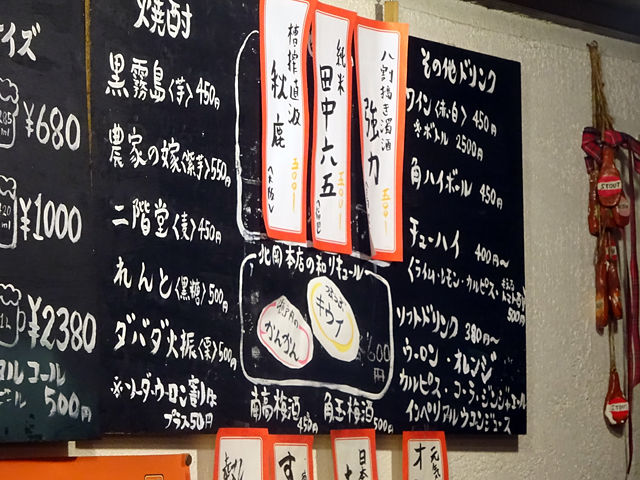 イズ
¥680
¥1000
¥2380
ルコール
500円
焼酎
黒霧島〈芋〉450円
農家の嫁〈紫芋〉550円
二階堂〈麦〉450円
れんと〈黒糖〉500円
ダバダ火振〈栗〉500円
※ソーダ・ウーロン割は
プラス50円
槽搾直汲
秋鹿
五〇〇
純米
田中六五
五五〇
八割磨き濁酒
強力
五〇〇
北岡本店の和リキュール
かんかん
キウイ
¥600円
南高梅酒 450円
角玉梅酒 500円
その他ドリンク
ワイン〈赤・白〉450円
※ボトル 2500円
角ハイボール 450円
チューハイ 400円〜
〈ライム・レモン・カルピス・
500円
ソフトドリンク 380円〜
ウーロン・オレンジ
カルピス・コーラ・ジンジャエール
インペリアルウコンジュース
す
日本
オ
元気
STOUT